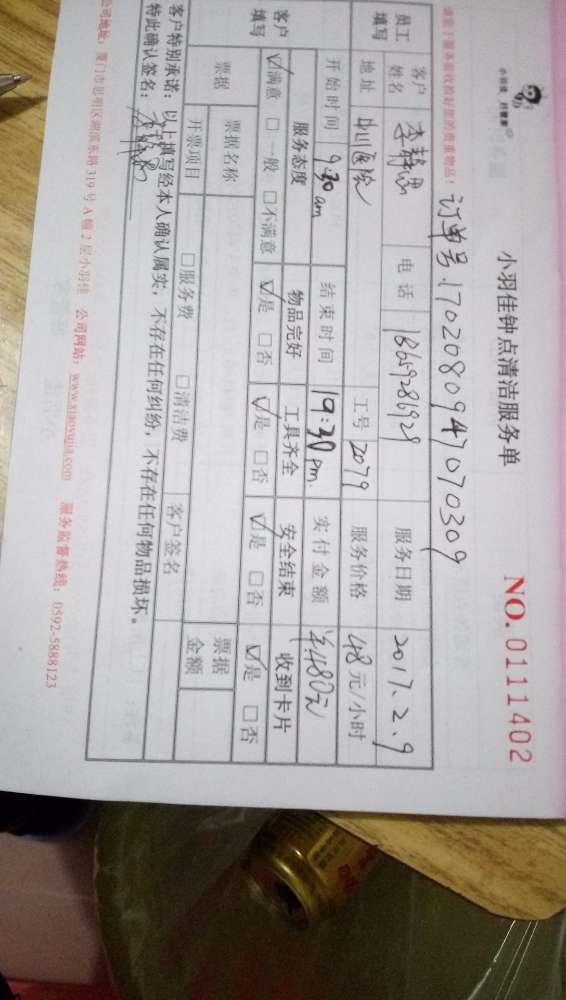 小羽佳 好管家
小羽佳钟点清洁服务单
NO. 0111402
订单号:170208094707 0309
请您于服务前收拾好您的贵重物品!
员工填写
客户姓名 李静 电话 18659286929 服务日期 2017.2.9
地址 中山医院 工号 2079 服务价格 48元/小时
开始时间 9:30am 结束时间 19:30pm. 实付金额 ¥:480元
客户填写
服务态度 物品完好 工具齐全 安全结束 收到卡片
☑满意 □一般 □不满意 ☑是 □否 ☑是 □否 ☑是 □否 ☑是 □否
票据 票据名称 票据金额
开票项目 □服务费 □清洁费 客户签名
客户特别承诺:以上填写经本人确认属实,不存在任何纠纷,不存在任何物品损坏。
特此确认签名:
公司地址:厦门市思明区湖滨东路319号A幢2层小羽佳 公司网站:www.xiaoyujia.com 服务监督热线:0592-5888123